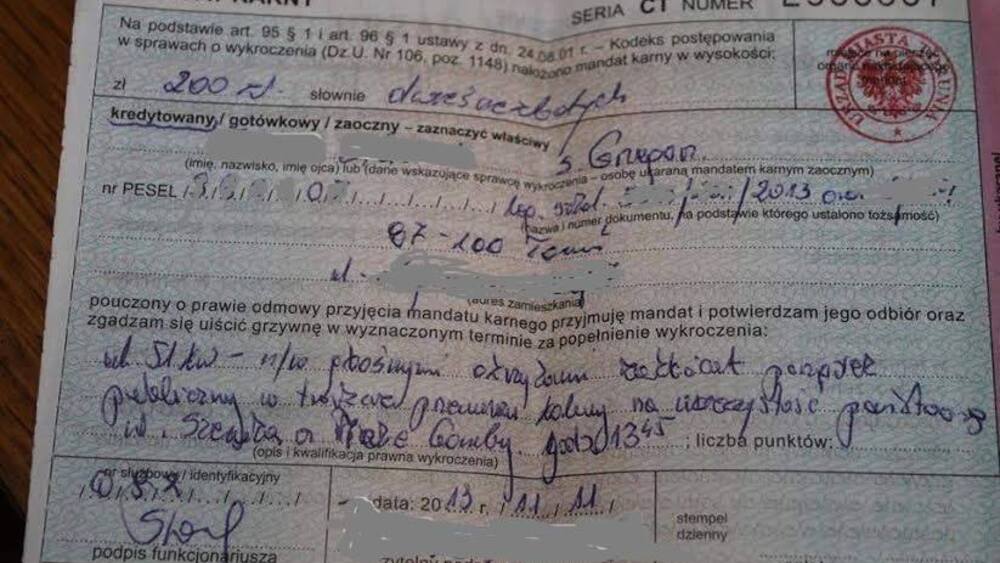 SERIA CT NUMER
Na podstawie art. 95 § 1 i art. 96 § 1 ustawy z dn. 24.08.01 r. – Kodeks postępowania
w sprawach o wykroczenia (Dz.U. Nr 106, poz. 1148) nałożono mandat karny w wysokości:
zł 200 zł. słownie dwieście złotych
kredytowany / gotówkowy / zaoczny – zaznaczyć właściwy
s. Grzegorz
(imię, nazwisko, imię ojca) lub (dane wskazujące sprawcę wykroczenia – osobę ukaraną mandatem karnym zaocznym)
nr PESEL leg. szkol. /2013
(nazwa i numer dokumentu, na podstawie którego ustalono tożsamość)
87-100 Toruń
ul.
(adres zamieszkania)
pouczony o prawie odmowy przyjęcia mandatu karnego przyjmuję mandat i potwierdzam jego odbiór oraz
zgadzam się uiścić grzywnę w wyznaczonym terminie za popełnienie wykroczenia:
51 kw – n/w głośnymi zakłócał porządek
publiczny w trakcie przemarszu na uroczystość
ul. Szeroka godz 13 45 ; liczba punktów:
(opis i kwalifikacja prawna wykroczenia)
nr służbowy / identyfikacyjny
data: 2013 r. / 11 / 11
stempel
dzienny
podpis funkcjonariusza